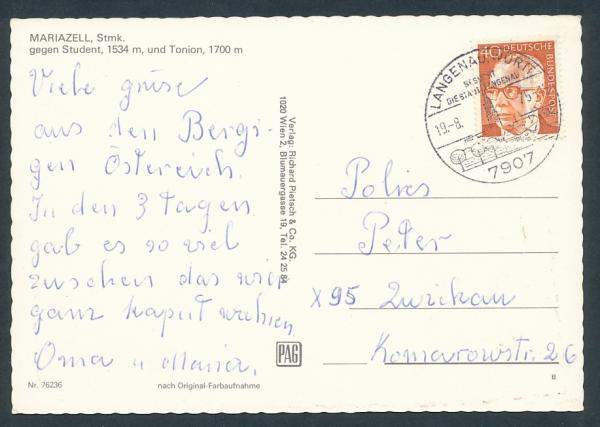 MARIAZELL, Stmk.
gegen Student, 1534 m, und Tonion, 1700 m
Viele grüse
aus den Bergi-
gen Östereich.
In den 3 Tagen
gab es so viel
zuschen das wir
ganz kaput wahren.
Oma u Maria.
Nr. 76236
nach Original-Farbaufnahme
Verlag: Richard Pietsch & Co. KG.
1020 Wien 2, Blumauergasse 19, Tel. 24 25 84
PAG
40 DEUTSCHE BUNDESPOST
LANGENAU, WÜRTT
BESUCHT
DIE STADT LANGENAU
19.-8.
75
7907
Polies
Peter
X95 Zwickau
Komarowstr. 26
B